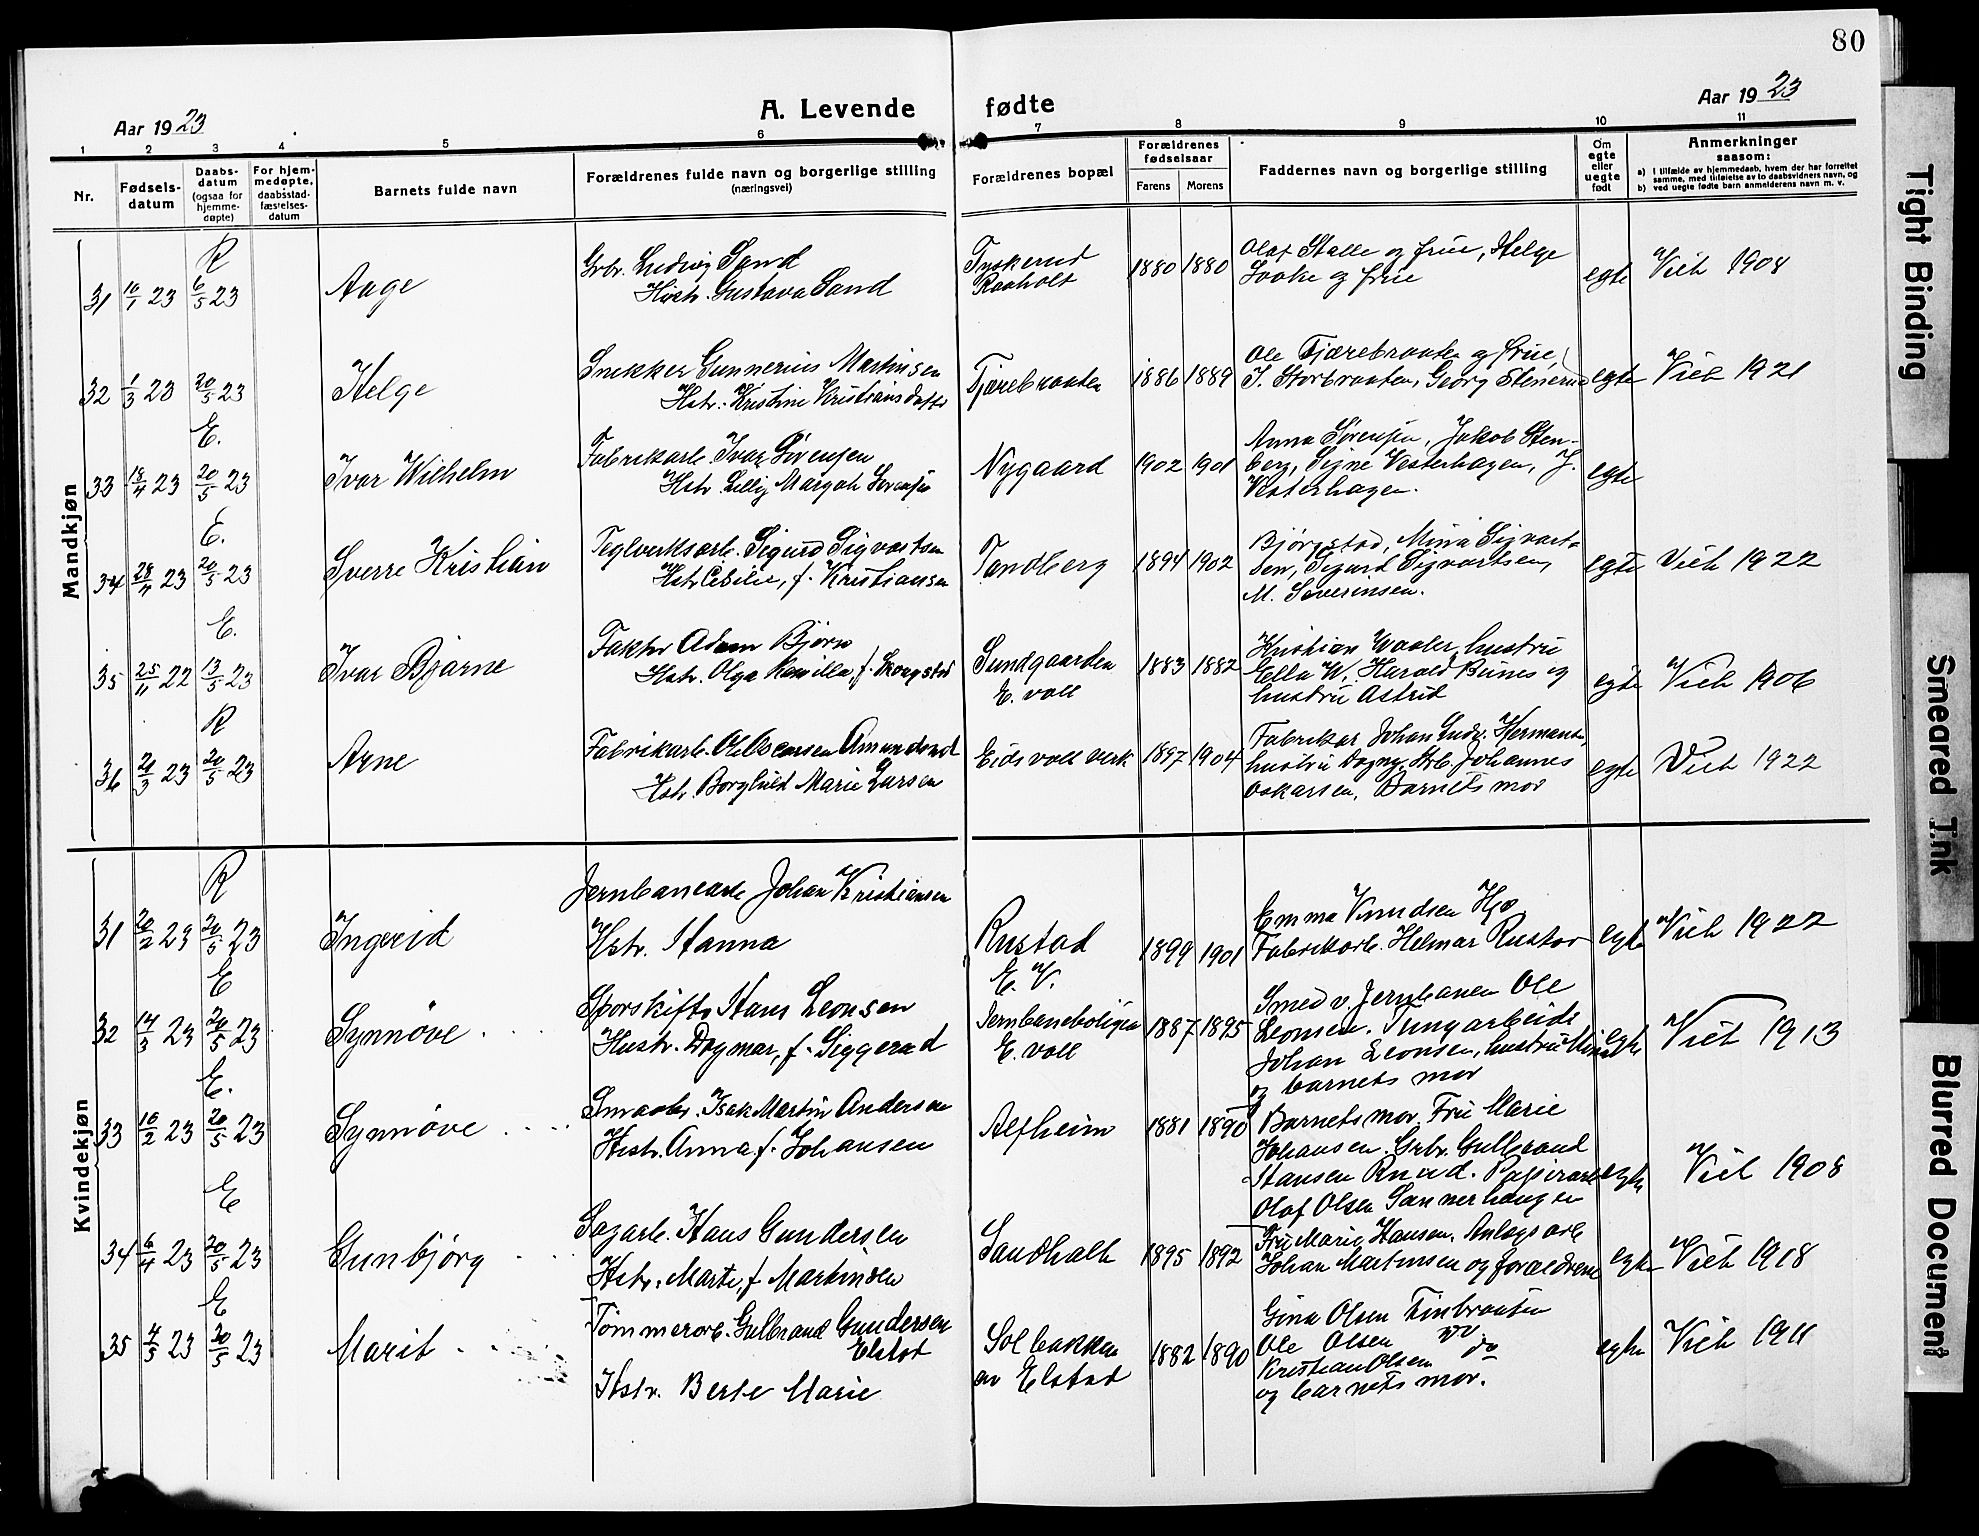 80
Aar 1923
A. Levende fødte
Aar 1923
1 2 3 4 5 6 7 8 9 10 11
Nr.
Fødsels-
datum
Daabs-
datum
(ogsaa for
hjemme-
døpte)
For hjem-
medøpte,
daabsstad-
fæstelses-
datum
Barnets fulde navn
Forældrenes fulde navn og borgerlige stilling
(næringsvei)
Forældrenes bopæl
Forældrenes
fødselsaar
Farens Morens
Faddernes navn og borgerlige stilling
Om
egte
eller
uegte
født
Anmerkninger
saasom:
a) I tilfælde av hjemmedaab, hvem der har forrettet
samme, med tilføielse av to daabsvidners navn, og
b) ved uegte fødte barn anmelderens navn m. v.
Mandkjøn
R
31 16/1 23 6/5 23 Aage
Grbr. Ludvig Sand
Hustr. Gustava Sand
Tyskerud
Raaholt
1880 1880
Olaf Stalle og frue, Helge
Looke og frue
egte Vieh 1908
32 1/3 23 20/5 23 Helge
Snekker Gunnerius Martinsen
Hstr. Kristine Kristiansdatter
Tjærebraaten
1886 1889
Ole Tjærebraaten og frue,
J. Storbraaten, Georg Stenerud
egte Vieh 1921
E.
33 18/4 23 20/5 23 Ivar Wilhelm
Fabrikarb. Ivar Sørensen
Hstr. Lilly Margoth Sørensen
Nygaard
1902 1901
Anna Sørensen, Jakob Sten-
berg, Signe Vesterhagen, J.
Vesterhagen.
egte
E.
34 28/4 23 20/5 23 Sverre Kristian
Teglverksarb. Sigurd Sigvartsen
Hstr. Cecilie, f. Kristiansen
Tandberg
1894 1902
Bjørgstad, Mina Sigvart-
sen, Sigurd Sigvartsen,
M. Severinsen.
egte Vieh 1922
E.
35 25/11 22 13/5 23 Ivar Bjarne
Faktor Adam Bjørn
Hstr. Olga Kamilla, f. Skongstad
Sundgaarden
E. voll
1883 1882
Kristian Waaler, hustru
Ella W, Harald Bunes og
hustru Astrid
egte Vieh 1906
R
36 21/3 23 20/5 23 Arne
Fabrikarb. Ole Oscarsen Amundrud
Hstr. Borghild Marie Larsen
Eidsvoll verk
1897 1904
Fabrikar. Johan Ludv. Hermans.,
hustru Dagny, Arb. Johannes
Oskarsen, Barnets mor
egte Vieh 1922
Kvindekjøn
R
31 20/2 23 20/5 23 Ingerid
Jernbanearb Johan Kristiansen
Hstr. Hanna
Rustad
E. V.
1899 1901
Emma Knudsen
Fabrikarb. Helmar Rustad
egte Vieh 1922
E
32 14/3 23 20/5 23 Synnøve
Sporskift. Hans Leonsen
Hustr. Dagmar, f. Siggerud
Jernbaneboligen
E. voll
1887 1895
Smed v. Jernbanen Ole
Leonsen. Tungarbeid.
Johan Leonsen, hustru
og barnets mor
egte Vieh 1913
E.
33 10/2 23 20/5 23 Synnøve
Smaabr. Isak Martin Andersen
Hustr. Anna f. Johansen
Alfheim
1881 1890
Barnets mor, Fru Marie
Johansen. Grbr. Gulbrand
Hansen Ruud. Papirarb
Olaf Olsen Sannerhaugen
egte Vieh 1908
E
34 6/4 23 20/5 23 Gunbjørg
Sagarb. Hans Gundersen
Hstr. Marte, f. Martinsen
Sandholt
1895 1892
Fru Marie Hansen. Anlægsarb
Johan Martinsen og forældrene
egte Vieh 1918
E
35 4/3 23 20/5 23 Marit
Tømmerarb. Gulbrand Gundersen
Elstad
Hstr. Berte Marie
Solbakken
av Elstad
1882 1890
Gina Olsen Finbraaten
Ole Olsen do
Kristian Olsen
og barnets mor.
egte Vieh 1911
Tight Binding
Smeared Ink
Blurred Document